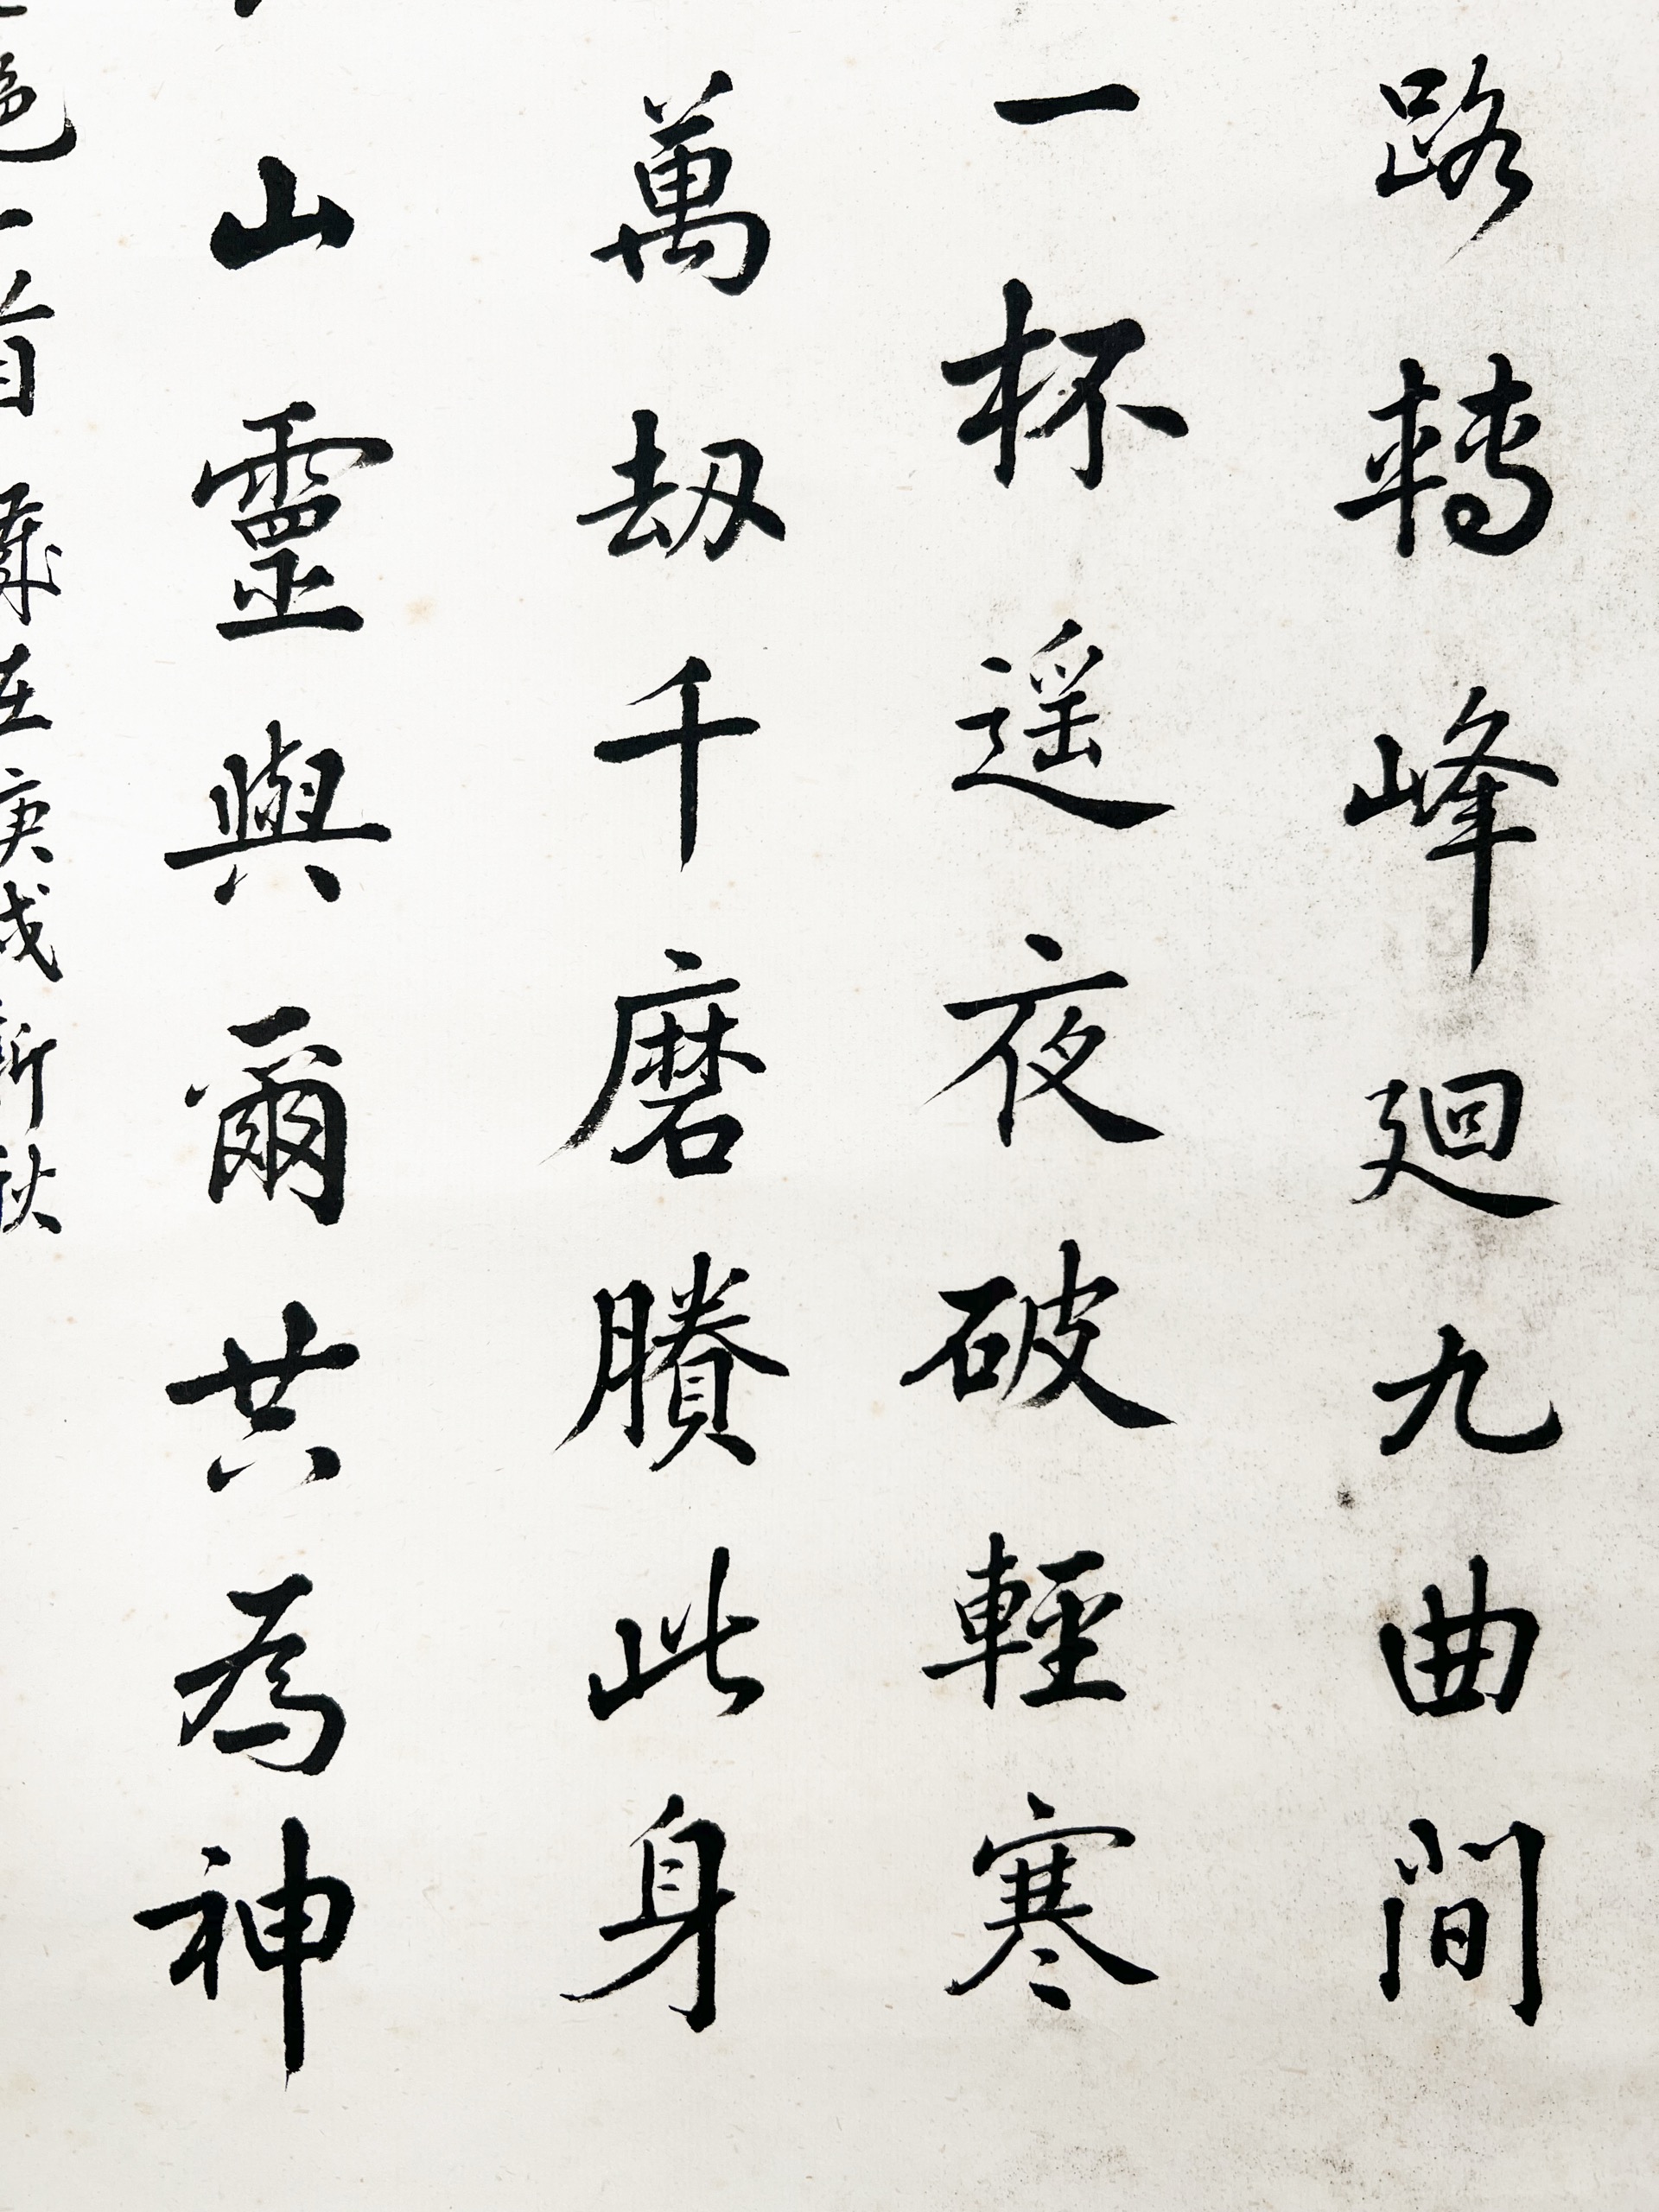 路轉峰廻九曲間
一杯遥夜破輕寒
萬劫千磨賸此身
山靈與爾共為神
絕一首 庚戌新秋